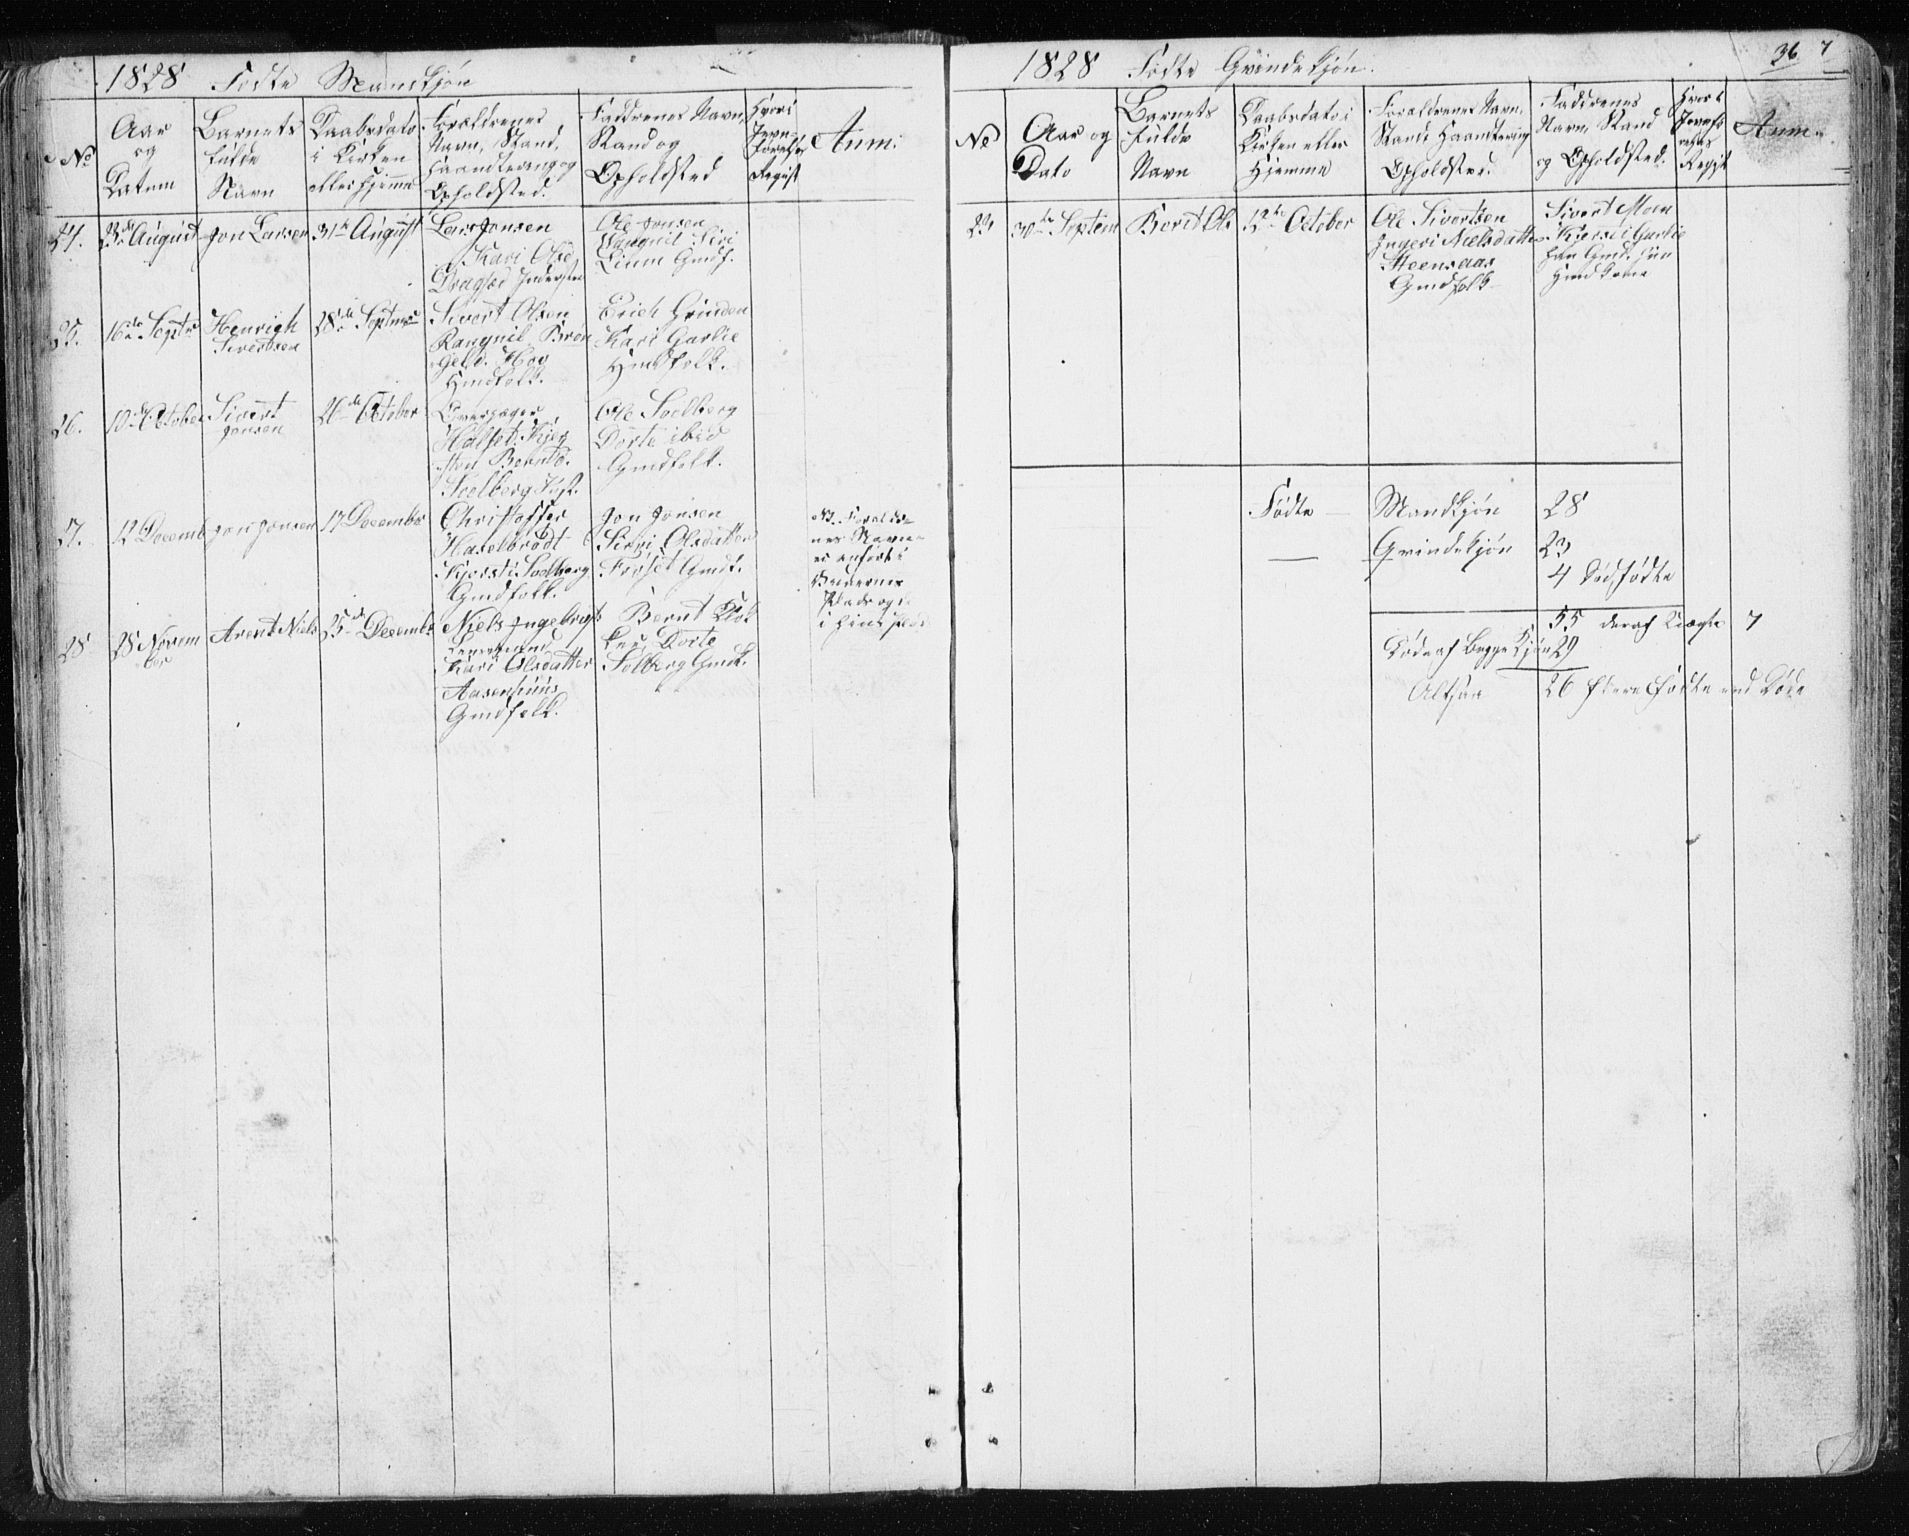 1828 Fødte Mandkjøn
No
Aar
og
Datum
Barnets
fulde
Navn
Daabsdato
i Kirken
eller Hjemme
Forældrenes
Navn, Stand,
Haandtering og
Opholdsted.
Faddrenes Navn,
Stand og
Opholdsted
Hvor i
Jevn-
førelse
Regist
Anm:
24.
23de August
Jon Larsen
31te August
Lars Jonsen
Kari Olsd.
Dragsed Inderster
Ole Jonsen
Rangnil Siri
Lium Gmdf.
25.
16de Septr
Henrigh
Sivertsen
28de Septembr
Sivert Olsen
Rangnil Brøn
geld. Hov
Hmdfolk.
Erich Grinden
Kari Garlie
Hmdfolk.
26.
10de October
Sivert
Jonsen
26de October
Halset. Kjer
sten Berntd.
Soelberg
Ole Soelberg
Dorte ibid
Gmdfolk.
27.
12 Decemb
Jon Jonsen
17 December
Christoffer
Haselbrødt
Kjersti Soelberg
Gmdfolk.
Jon Jonsen
Siri Olsdatter
Forset Gmdf.
NB. Foreldre-
nes Navne
er anført i
Faddernes
Plads og
i hines
28
28 Novem
ber
Arent Niels
25de Decembr
Niels Ingebrigts
Kari Olsdatter
Aasenhuus
Gmdfolk.
Bernt Klok
ker, Dorte
Solberg Gmdf.
1828 Fødte Qvindekjøn.
36 7
No
Aar og
Dato
Barnets
fulde
Navn
Daabsdato i
Kirken eller
Hjemme
Foraldrenes Navn,
Stand Haandtering
Opholdsted.
Faddrenes
Navn, Stand
og Opholdsted.
Hvor i
Jevnfø
relses
Regist
Anm.
23
30te Septem
Berit Ols
12te October
Ole Sivertsen
Ingeri Nielsdatter
Steensaas
Gmdfolk
Sivert Moen
Kjersti Garlie
han Gmd. hun
Hmdkone
Fødte — Mandkjøn 28
— Qvindekjøn 23
4 Dødfødte
55 deraf Uægte 7
Døde af begge Kjøn 29
Altsaa 26 flere Fødte end Døde